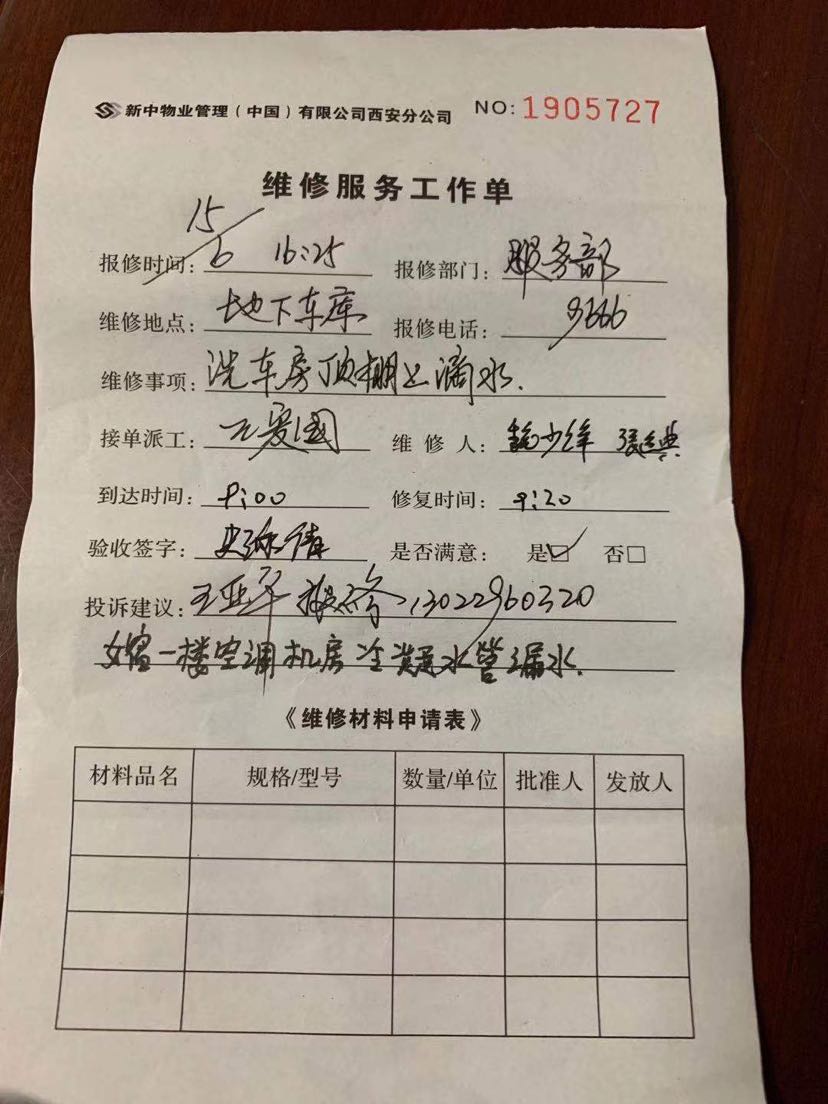 新中物业管理（中国）有限公司西安分公司 NO: 1905727
维修服务工作单
报修时间: 15/6 16:25 报修部门: 服务部
维修地点: 地下车库 报修电话: 9666
维修事项: 洗车房顶棚上滴水.
接单派工: 爱国 维修人:
到达时间: 9:00 修复时间: 9:20
验收签字: 是否满意: 是☑ 否□
投诉建议: 王亚军 报修 13022960320
女宿一楼空调机房冷凝水管漏水.
《维修材料申请表》
材料品名 规格/型号 数量/单位 批准人 发放人